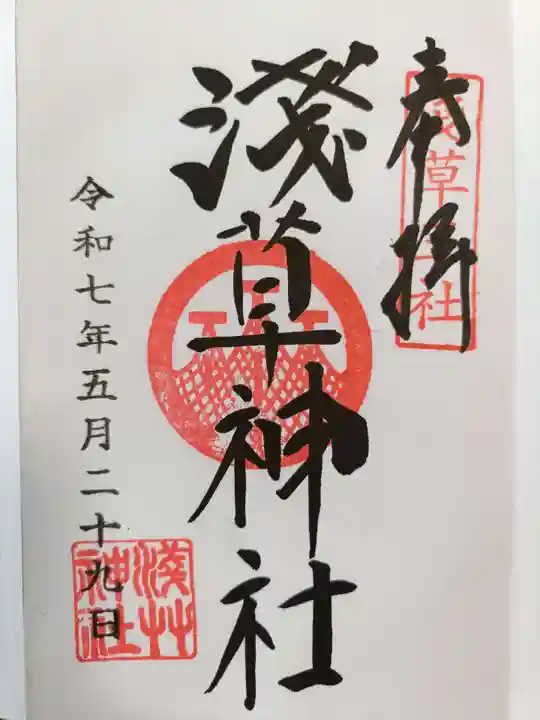 奉拝
淺草三社
淺草神社
令和七年五月二十九日
淺草
神社